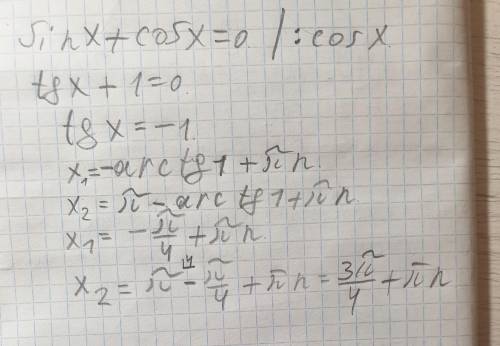 sinx + cosx = 0 | : cosx
tgx + 1 = 0
tgx = -1
x₁ = -arctg1 + πn.
x₂ = π - arctg1 + πn
x₁ = -π/4 + πn.
x₂ = π^{\4} - π/4 + πn = 3π/4 + πn